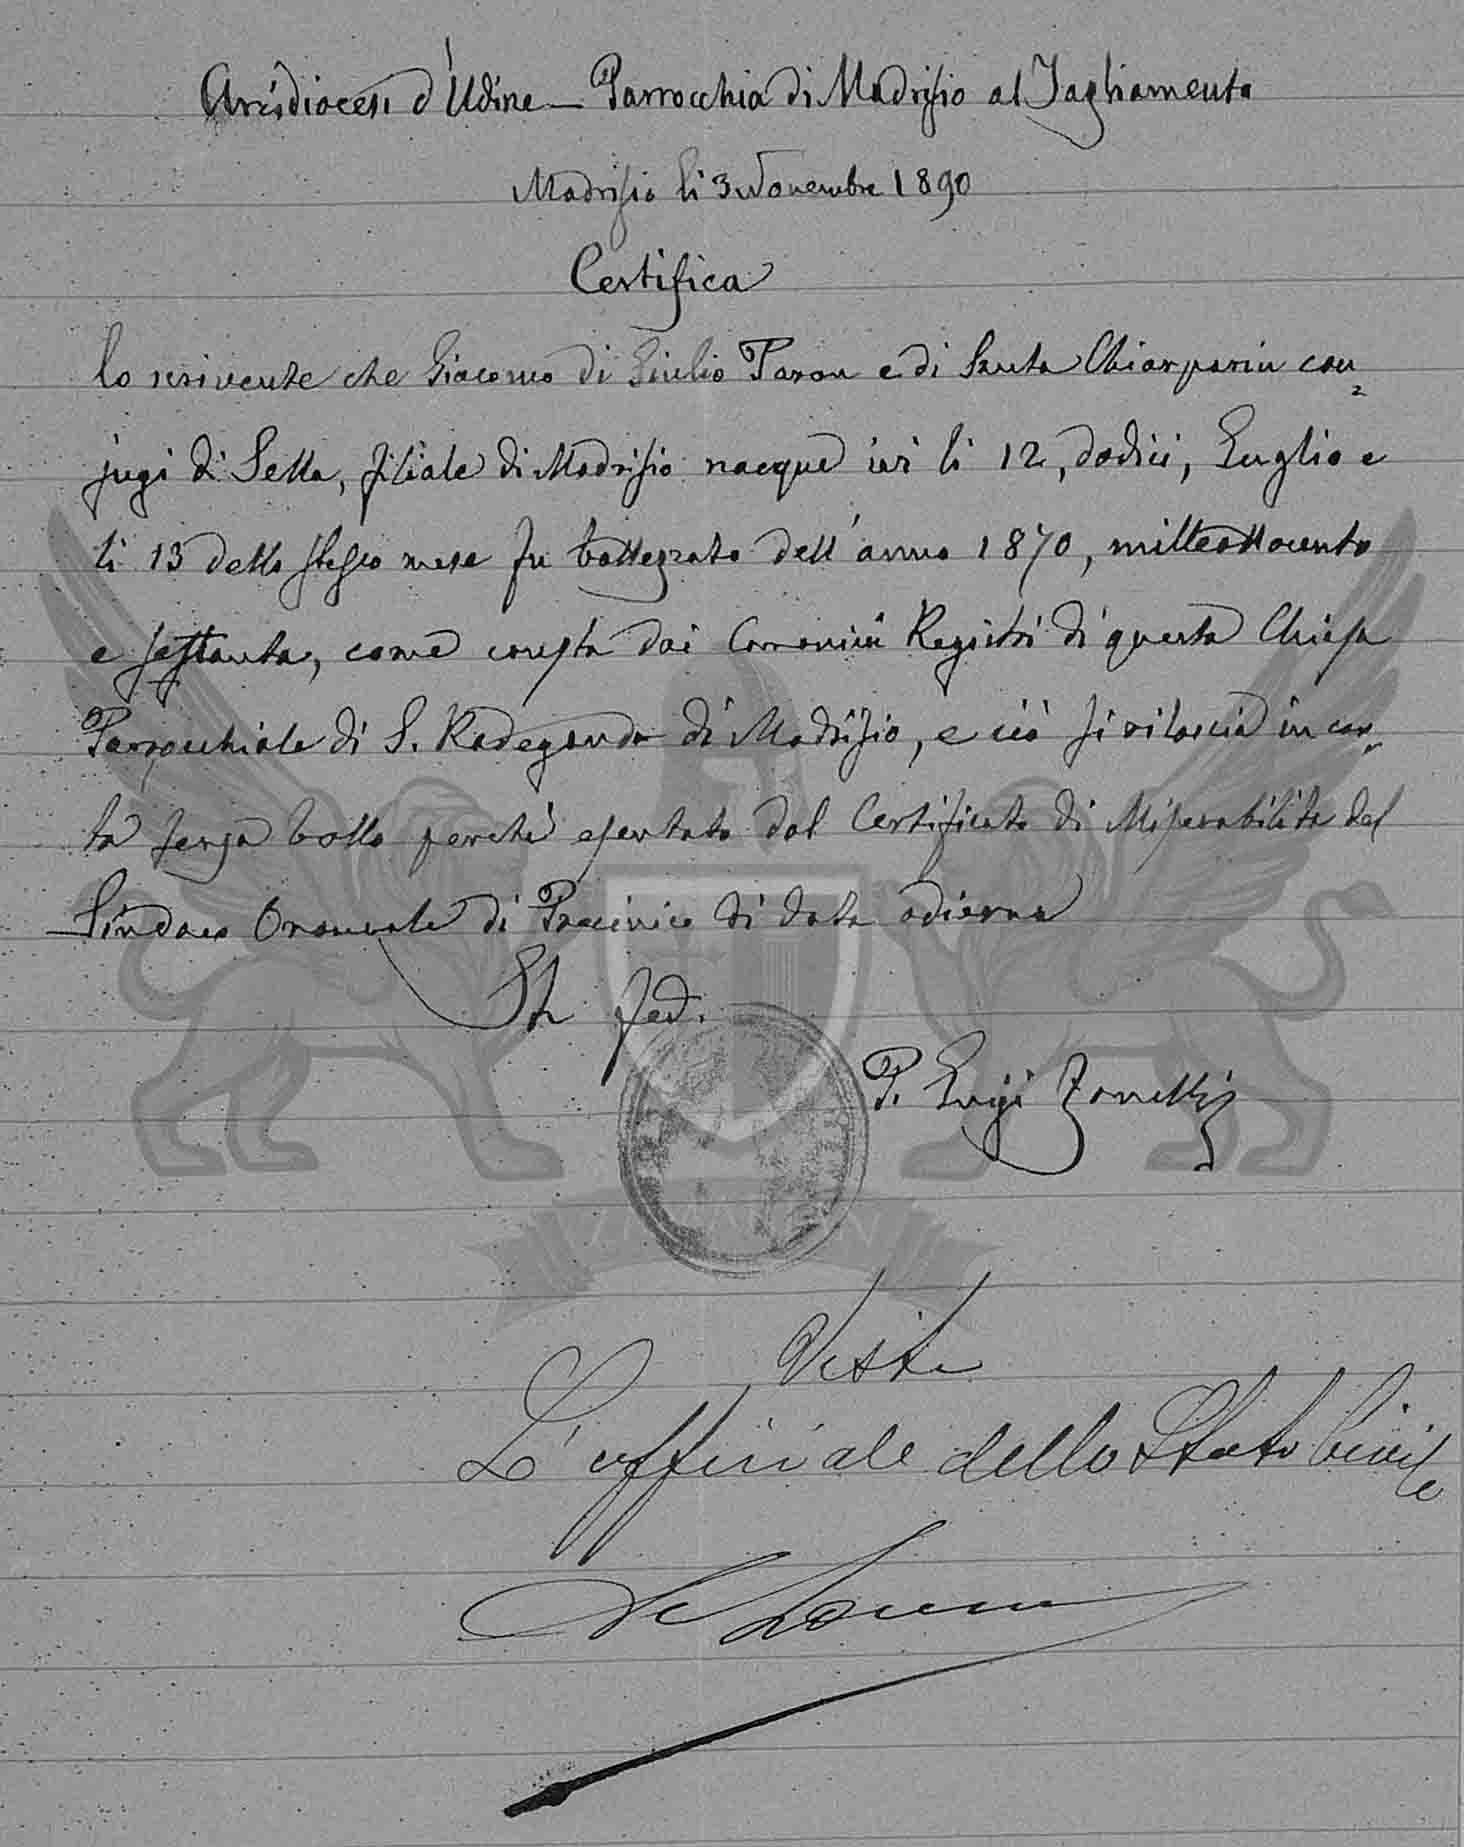 Arcidiocesi d'Udine — Parrocchia di Madrisio al Tagliamento
Madrisio li 3 Novembre 1890
Certifica
lo scrivente che Giacomo di Giulio Paron e di Santa Chiarparin con=
jugi di Sella, filiale di Madrisio nacque ieri li 12, dodici, Luglio e
li 13 dello stesso mese fu battezzato dell'anno 1870, milleottocento
e settanta, come consta dai Canonici Registri di questa Chiesa
Parrocchiale di S. Radegonda di Madrisio, e ciò si rilascia in car=
ta senza bollo perchè esentato dal Certificato di Miserabilità del
Sindaco Onorevole di Precenico di data odierna
In fed.
P. Luigi Zanelli
Visto
L'uffiziale dello Stato Civile